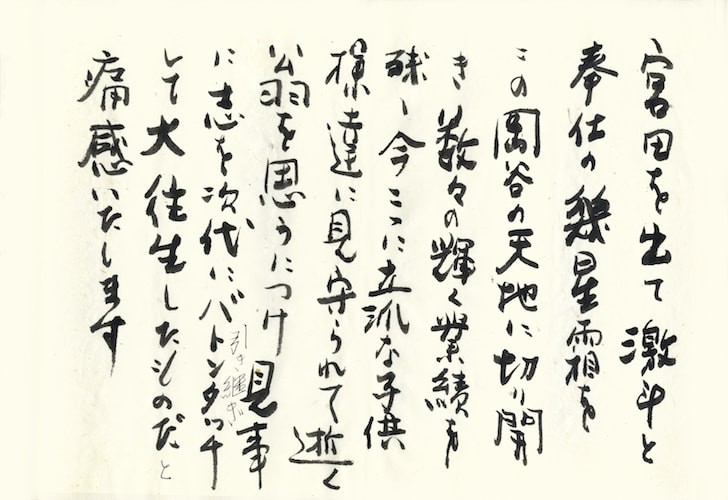 宮田を出て激斗と
奉仕の幾星霜を
この岡谷の天地に切り開
き数々の輝く業績を
残し今ここに立派な子供
様達に見守られて逝く
翁を思うにつけ見事
に志を次代にバトンタッチ
引き継ぎ
して大往生したものだと
痛感いたします